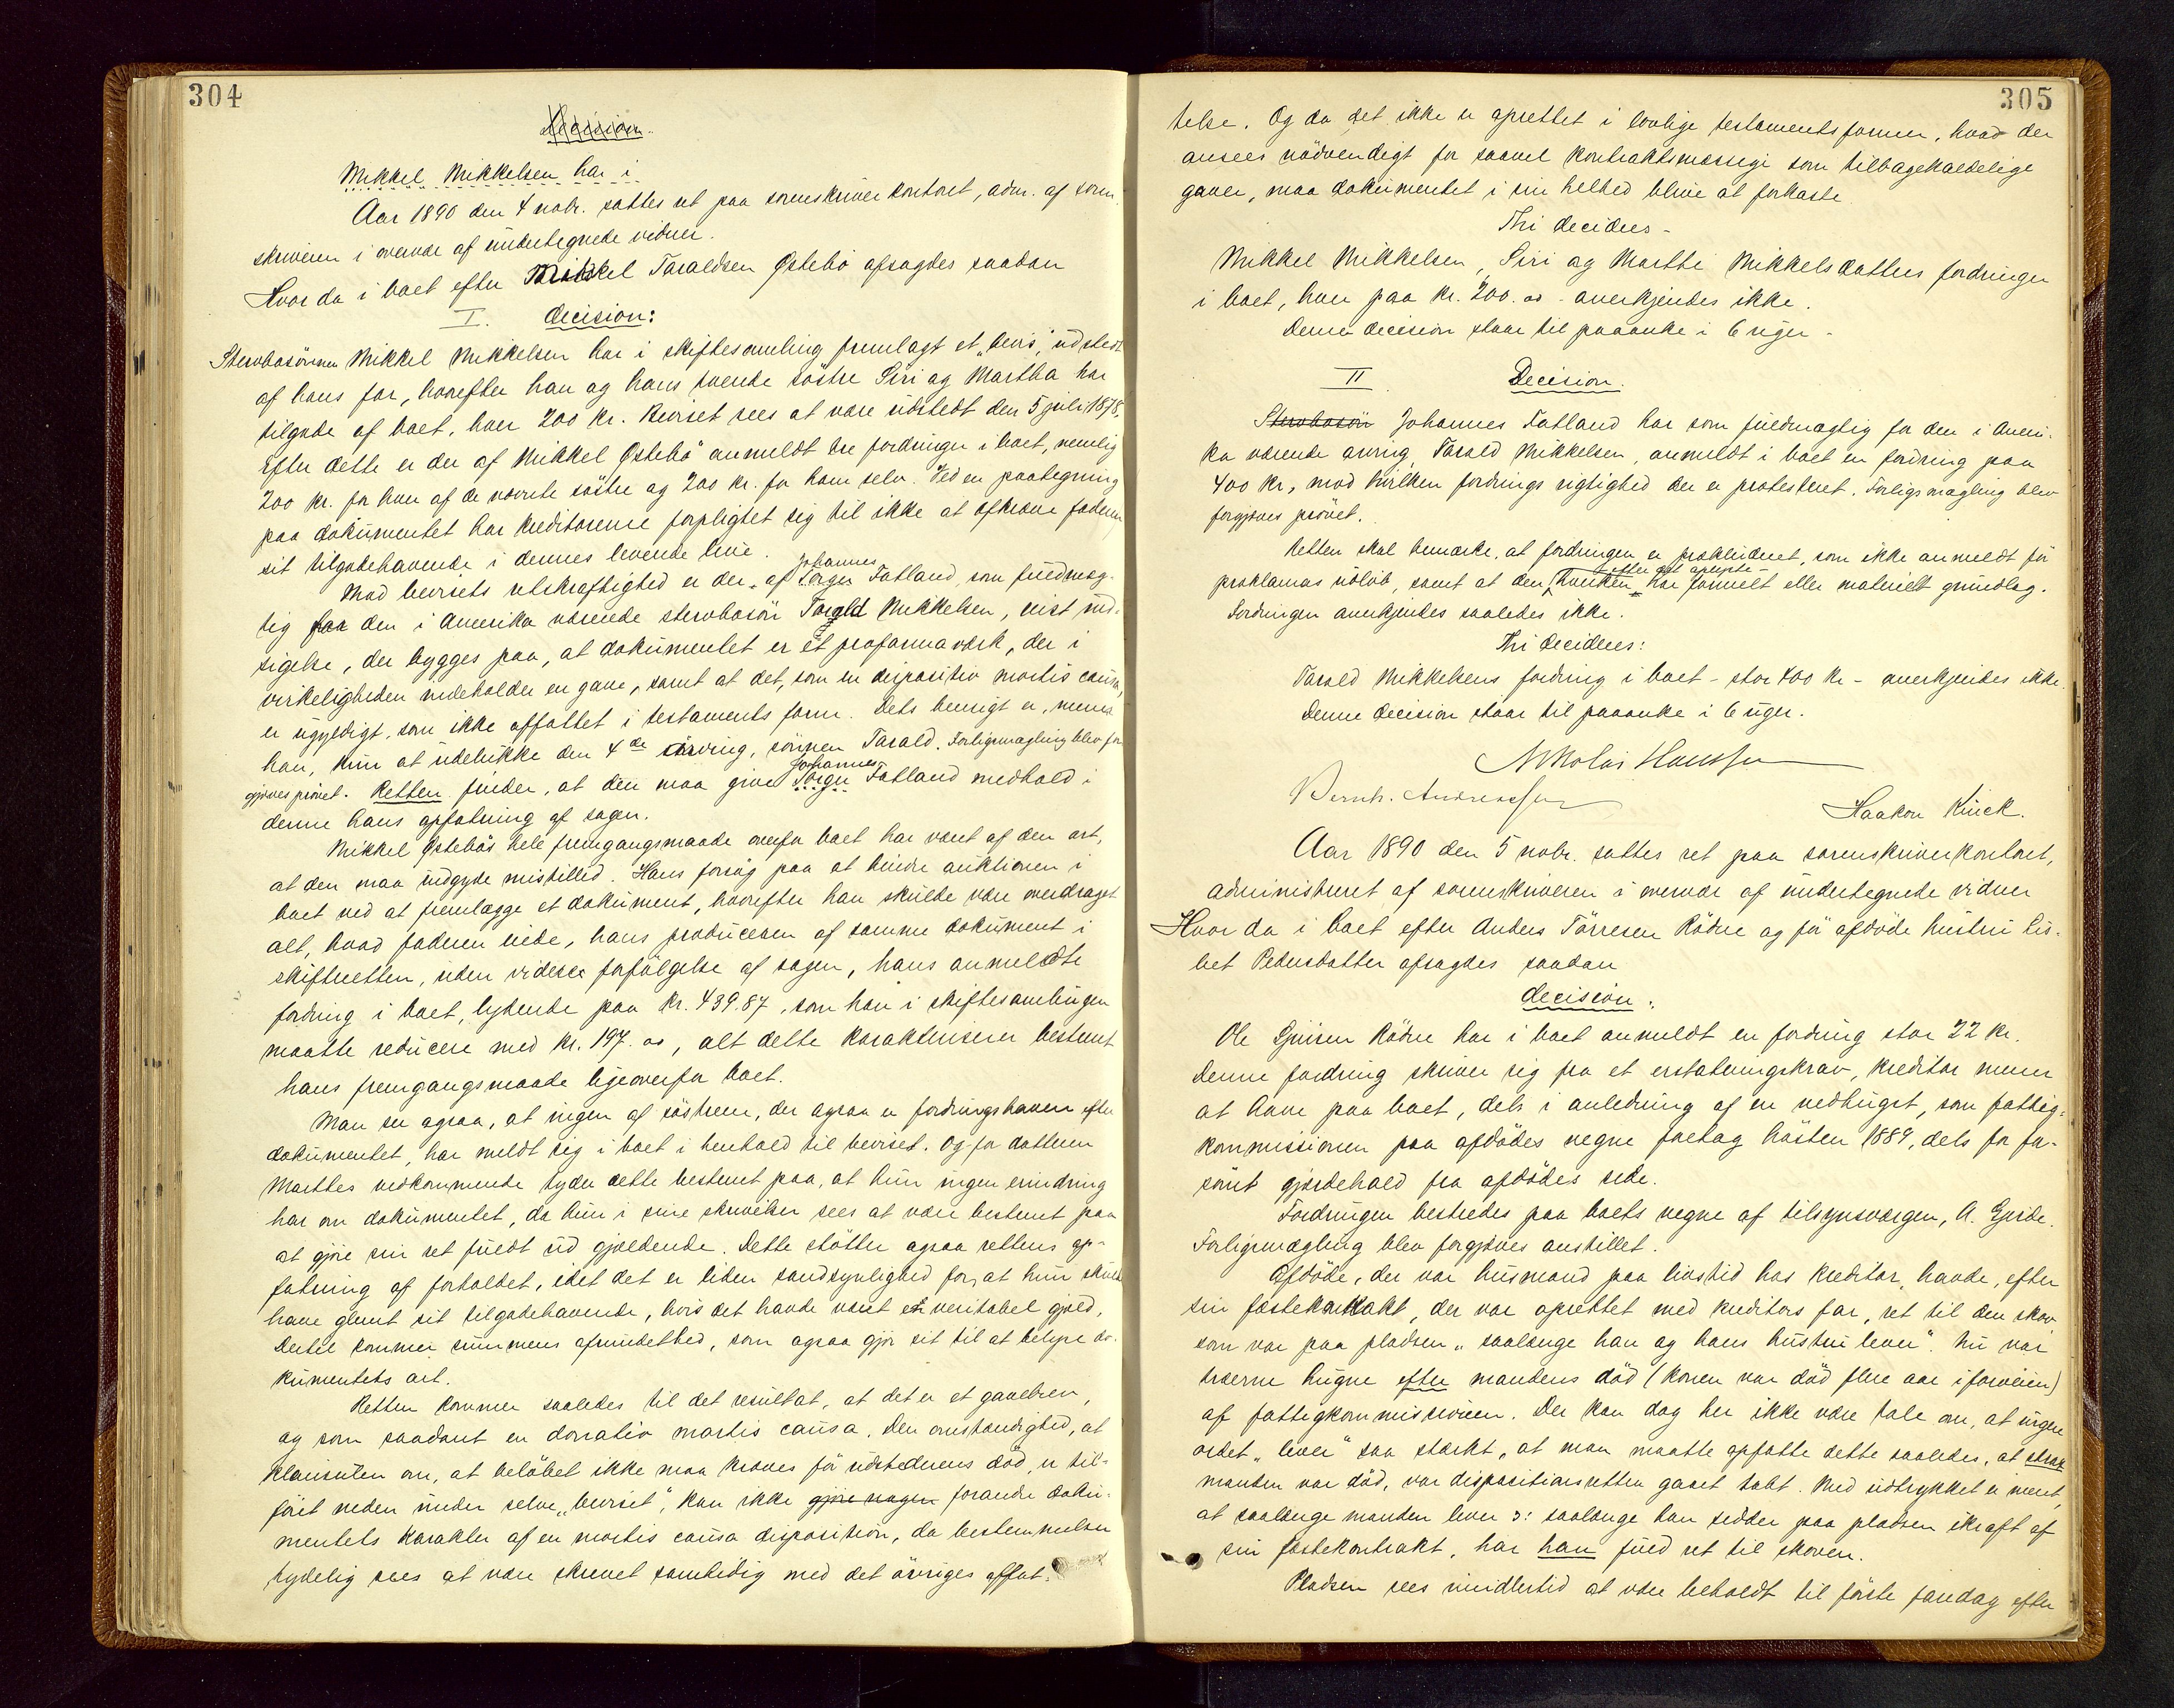 304
Decision.
Mikkel Mikkelsen har i
Aar 1890 den 4 nobr. sattes ret paa sorenskriverkontoret, adm. af soren
skriveren i overvær af undertegnede vidner.
Hvor da i boet efter Mikkel Taraldsen Østebö afsagdes saadan
I. decision:
Stervbosönnen Mikkel Mikkelsen har i skiftesamling fremlagt et „bevis“, udstedt
af hans far, hvorefter han og hans tvende söstre Siri og Martha har
tilgode af boet, hver 200 kr. Beviset sees at være udstedt den 5 juli 1878.
Efter dette er der af Mikkel Østebö anmeldt tre fordringer i boet, nemlig
200 kr. for hver af de nævnte söstre og 200 kr. for ham selv. Ved en paategning
paa dokumentet har kreditorerne forpligtet sig til ikke at afkræve faderen
sit tilgodehavende i dennes levende live.
Johannes
Mod bevisets retskraftighed er der af Torger Fatland, som fuldmæg-
tig for den i Amerika værende stervbosön Tarald Mikkelsen, reist ind-
sigelse, der bygges paa, at dokumentet er et proformaværk, der i
virkeligheden indeholder en gave, samt at det, som en dispositiv mortis causa,
er ugyldigt, som ikke affattet i testaments form. Dets hensigt er, mener
han, kun at udelukke den 4de arving, sönnen Tarald. Forligsmægling blev for
Johannes
gjæves prövet. Retten finder, at den maa give Torger Fatland medhold i
denne hans opfatning af sagen.
Mikkel Østebös hele fremgangsmaade overfor boet har været af den art,
at den maa indgyde mistillid. Hans forsög paa at hindre auktionen i
boet ved at fremlægge et dokument, hvorefter han skulde være overdraget
alt, hvad faderen eiede, hans produceren af samme dokument i
skifteretten, uden videre forfölgelse af sagen, hans anmeldte
fordring i boet, lydende paa kr. 439.87, som han i skiftesamlingen
maatte reducere med kr. 197.00, alt dette karakteriserer bestemt
hans fremgangsmaade ligeoverfor boet.
Man ser ogsaa, at ingen af söstrene, der ogsaa er fordringshavere efter
dokumentet, har meldt sig i boet i henhold til beviset. Og for datteren
Marthes vedkommende tyder dette bestemt paa, at hun ingen erindring
har om dokumentet, da hun i sine skrivelser sees at være bestemt paa
at gjöre sin ret fuldt ud gjældende. Dette stötter ogsaa rettens op-
fatning af forholdet, idet det er liden sandsynlighed for, at hun skulde
have glemt sit tilgodehavende, hvis det havde været en veritabel gjæld.
Dertil kommer summens afrundethed, som ogsaa gjör sit til at belyse do-
kumentets art.
Retten kommer saaledes til det resultat, at det er et gavebrev,
og som saadant en donatio mortis causa. Den omstændighed, at
klausulen om, at belöbet ikke maa kræves för udstederens död, er til-
föiet neden under selve „beviset“, kan ikke gjöre nogen forandre doku-
mentets karakter af en mortis causa disposition, da bestemmelsen
tydelig sees at være skrevet samtidig med det övriges affat-
305
telse. Og da det ikke er oprettet i lovlige testamentsformer, hvad der
ansees nödvendigt for saavel kontraktsmæssige som tilbagekaldelige
gaver, maa dokumentet i sin helhed blive at forkaste.
Thi decideres -
Mikkel Mikkelsen, Siri og Marthe Mikkelsdatters fordringer
i boet, hver paa kr. 200.00 - anerkjendes ikke.
Denne decision staar til paaanke i 6 uger -
II Decision.
Stervbosön Johannes Fatland har som fuldmægtig for den i Ameri-
ka værende arving, Tarald Mikkelsen, anmeldt i boet en fordring paa
400 kr, mod hvilken fordrings rigtighed der er protesteret. Forligsmægling blev
forgjæves prövet.
Retten skal bemærke, at fordringen er prækluderet, som ikke anmeldt för
efter det oplyste
proklamas udlöb, samt at den hverken har formelt eller materielt grundlag.
Fordringen anerkjendes saaledes ikke.
Thi decideres:
Tarald Mikkelsens fordring i boet - stor 400 kr - anerkjendes ikke.
Denne decision staar til paaanke i 6 uger.
Nikolai Hanssen
Bernh. Andreassen
Haakon Kinck.
Aar 1890 den 5 nobr. sattes ret paa sorenskriverkontoret,
administreret af sorenskriveren i overvær af undertegnede vidner
Hvor da i boet efter Anders Törresen Rödne og för afdöde hustru Lis-
bet Pedersdatter afsagdes saadan
decision:
Ole Rödne har i boet anmeldt en fordring stor 22 kr.
Denne fordring skriver sig fra et erstatningskrav, kreditor mener
at have paa boet, dels i anledning af en vedhugst, som fattig-
kommissionen paa afdödes vegne foretog hösten 1889, dels for for-
sömt gjærdehold fra afdödes side.
Fordringen bestredes paa boets vegne af tilsynsværgen, A. Gjerde.
Forligsmægling blev forgjæves anstillet.
Afdöde, der var husmand paa livstid hos kreditor, havde, efter
sin fæstekontrakt, der var oprettet med kreditors far, ret til den skov
som var paa pladsen „saalænge han og hans hustru lever“. Nu var
træerne hugne efter mandens död (konen var död flere aar iforveien)
af fattigkommissionen. Der kan dog her ikke være tale om, at urgere
ordet „lever“ saa stærkt, at man maatte opfatte dette saaledes, at strax
manden var död, var dispositionsretten gaaet tabt. Med udtrykket er ment,
at saalænge manden lever ɔ: saalænge han sidder paa pladsen ikraft af
sin fæstekontrakt, har han fuld ret til skoven.
Pladsen sees imidlertid at være beholdt til förste faredag efter